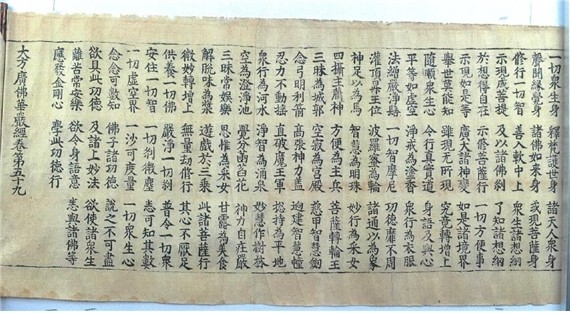 一切衆生身 釋梵護世身 諸天人衆身
聲聞緣覺身 諸佛如來身 或現菩薩身
修行一切智 善入軟中上 衆生諸想網
示現成菩提 及以諸佛剎 了知諸想網
於想得自在 示修菩薩行 一切方便事
示現如是等 廣大諸神變 如是諸境界
舉世莫能知 雖現無所現 究竟轉增上
隨順衆生心 令行真實道 身語及與心
平等如虛空 淨戒為塗香 衆行為衣服
法繒嚴淨髻 一切智摩尼 功德靡不周
灌頂昇王位 波羅蜜為輪 諸通以為象
神足以為馬 智慧為明珠 妙行為采女
四攝主藏神 方便為主兵 菩薩轉輪王
三昧為城郭 空寂為宮殿 慈甲智慧劒
念弓明利箭 高張神力蓋 逈建智慧幢
忍力不動搖 直破魔王軍 揔持為平地
衆行為河水 淨智為涌泉 妙慧作樹林
空為澄淨池 覺分菡萏花 神力自莊嚴
三昧常娛樂 思惟為采女 甘露為美食
解脫味為漿 遊戲於三乘 此諸菩薩行
微妙轉增上 無量劫修行 其心不厭足
供養一切佛 嚴淨一切剎 普令一切衆
安住一切智 一切剎微塵 悉可知其數
一切虛空界 一沙可度量 一切衆生心
念念可數知 佛子諸功德 說之不可盡
欲具此功德 及諸上妙法 欲使諸衆生
離苦常安樂 欲令身語意 悉與諸佛等
應發金剛心 學此功德行
大方廣佛華嚴經卷第五十九